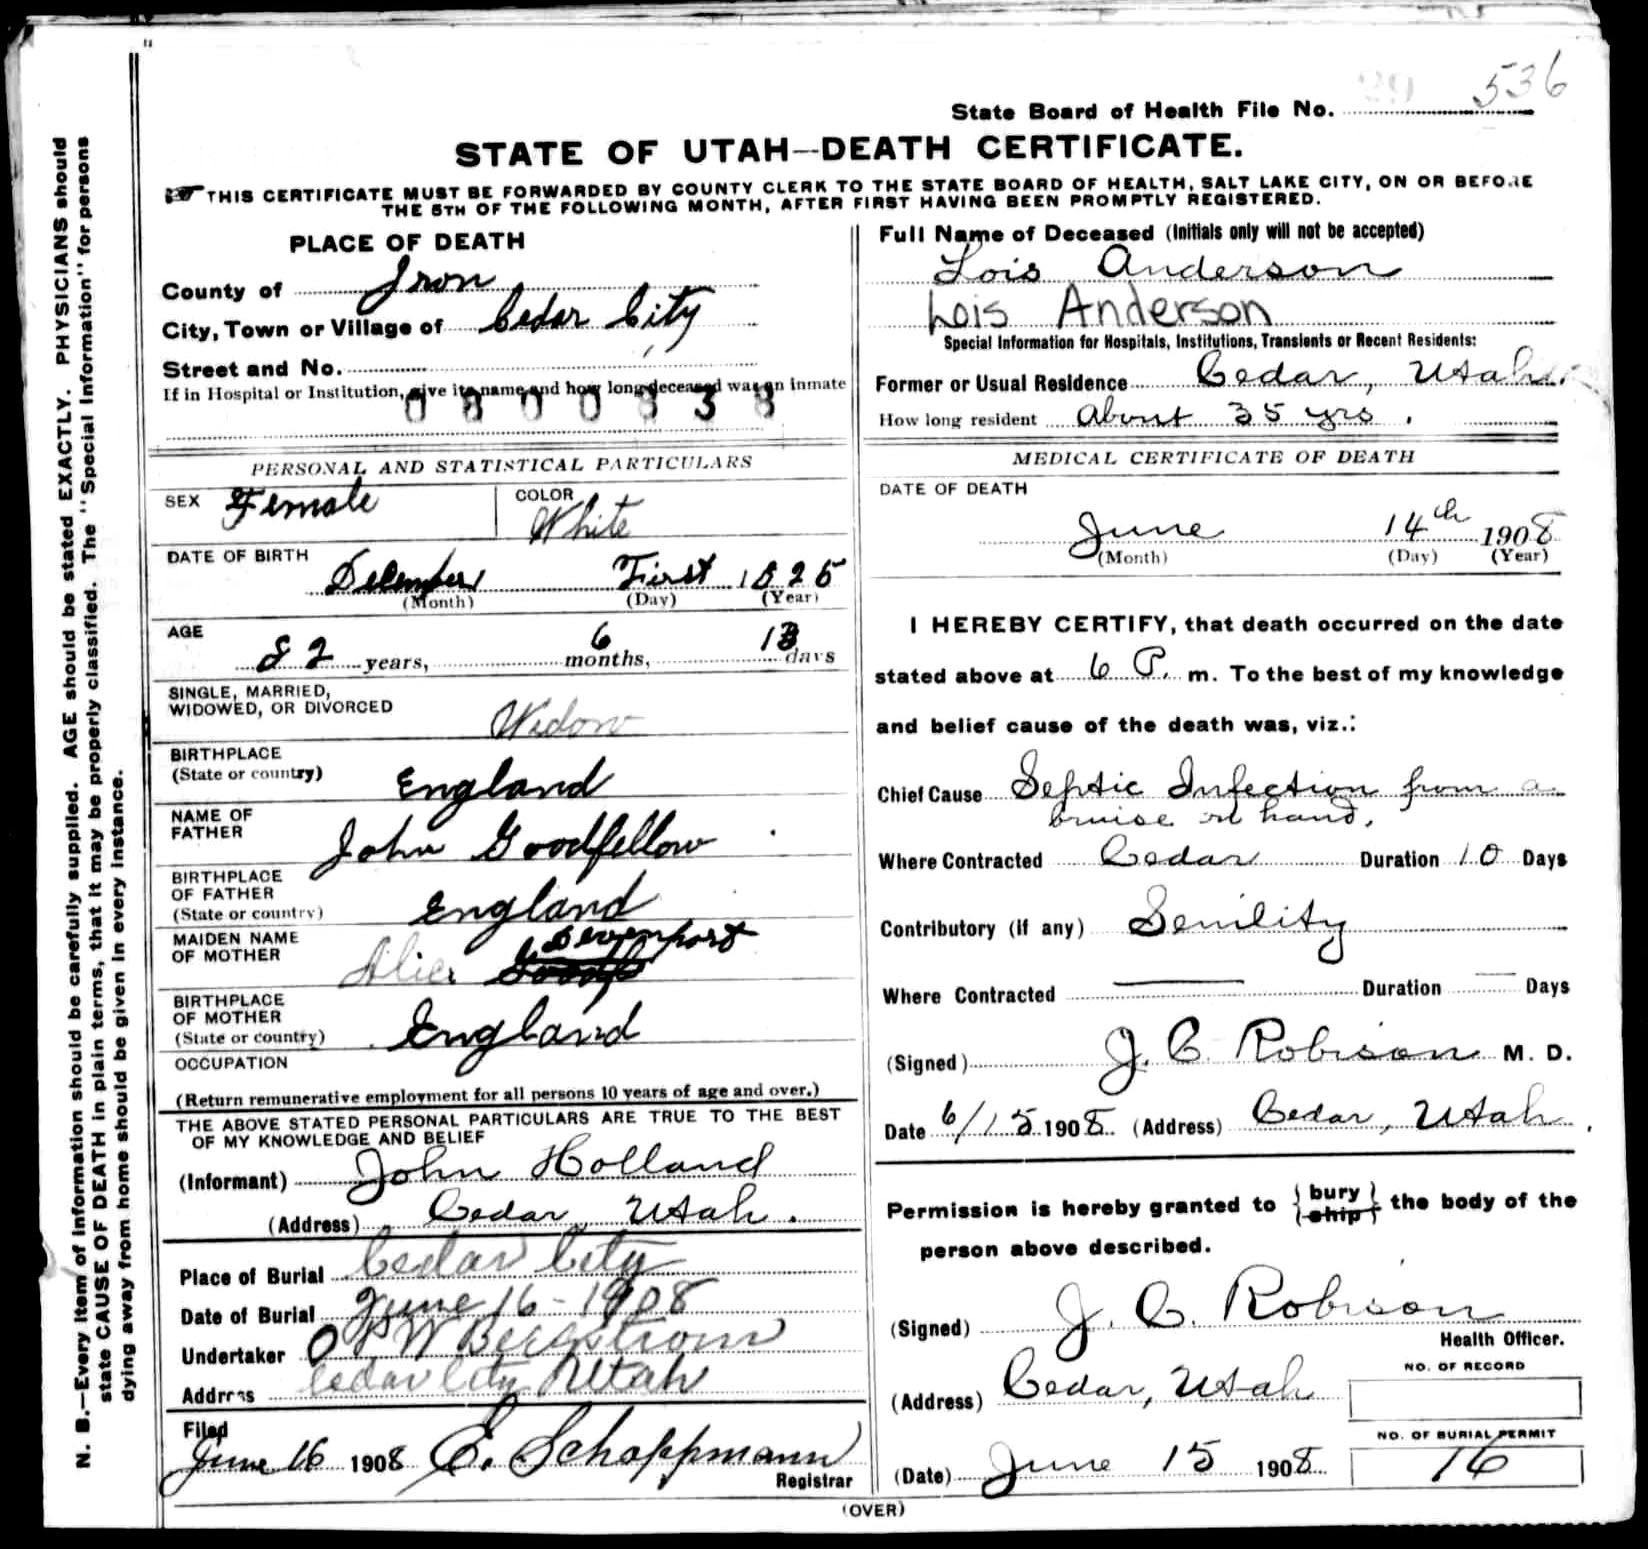 State Board of Health File No. 536
STATE OF UTAH—DEATH CERTIFICATE.
THIS CERTIFICATE MUST BE FORWARDED BY COUNTY CLERK TO THE STATE BOARD OF HEALTH, SALT LAKE CITY, ON OR BEFORE
THE 5TH OF THE FOLLOWING MONTH, AFTER FIRST HAVING BEEN PROMPTLY REGISTERED.
PLACE OF DEATH
County of Iron
City, Town or Village of Cedar City
Street and No.
If in Hospital or Institution, give its name and how long deceased was an inmate
Full Name of Deceased (Initials only will not be accepted)
Lois Anderson
Lois Anderson
Special Information for Hospitals, Institutions, Transients or Recent Residents:
Former or Usual Residence Cedar, Utah
How long resident About 35 yrs.
PERSONAL AND STATISTICAL PARTICULARS
SEX Female COLOR White
DATE OF BIRTH
December First 1825
(Month) (Day) (Year)
AGE
82 years, 6 months, 13 days
SINGLE, MARRIED,
WIDOWED, OR DIVORCED Widow
BIRTHPLACE
(State or country) England
NAME OF
FATHER John Goodfellow
BIRTHPLACE
OF FATHER
(State or country) England
MAIDEN NAME
OF MOTHER Alice Devenport
BIRTHPLACE
OF MOTHER
(State or country) England
OCCUPATION
(Return remunerative employment for all persons 10 years of age and over.)
THE ABOVE STATED PERSONAL PARTICULARS ARE TRUE TO THE BEST
OF MY KNOWLEDGE AND BELIEF
(Informant) John Holland
(Address) Cedar, Utah.
Place of Burial Cedar City
Date of Burial June 16-1908
Undertaker O P W Bergstrom
Address Cedar City Utah
Filed
June 16 1908 E. Schoppmann
Registrar
MEDICAL CERTIFICATE OF DEATH
DATE OF DEATH
June 14th 1908
(Month) (Day) (Year)
I HEREBY CERTIFY, that death occurred on the date
stated above at 6 P. m. To the best of my knowledge
and belief cause of the death was, viz.:
Chief Cause Septic Infection from a
bruise on hand.
Where Contracted Cedar Duration 10 Days
Contributory (if any) Senility
Where Contracted — Duration — Days
(Signed) J. C. Robison M. D.
Date 6/15 1908 (Address) Cedar, Utah.
Permission is hereby granted to { bury ship } the body of the
person above described.
(Signed) J. C. Robison
Health Officer.
(Address) Cedar, Utah
NO. OF RECORD
NO. OF BURIAL PERMIT
(Date) June 15 1908. 16
(OVER)
N. B.—Every item of information should be carefully supplied. AGE should be stated EXACTLY. PHYSICIANS should
state CAUSE OF DEATH in plain terms, that it may be properly classified. The "Special Information" for persons
dying away from home should be given in every instance.